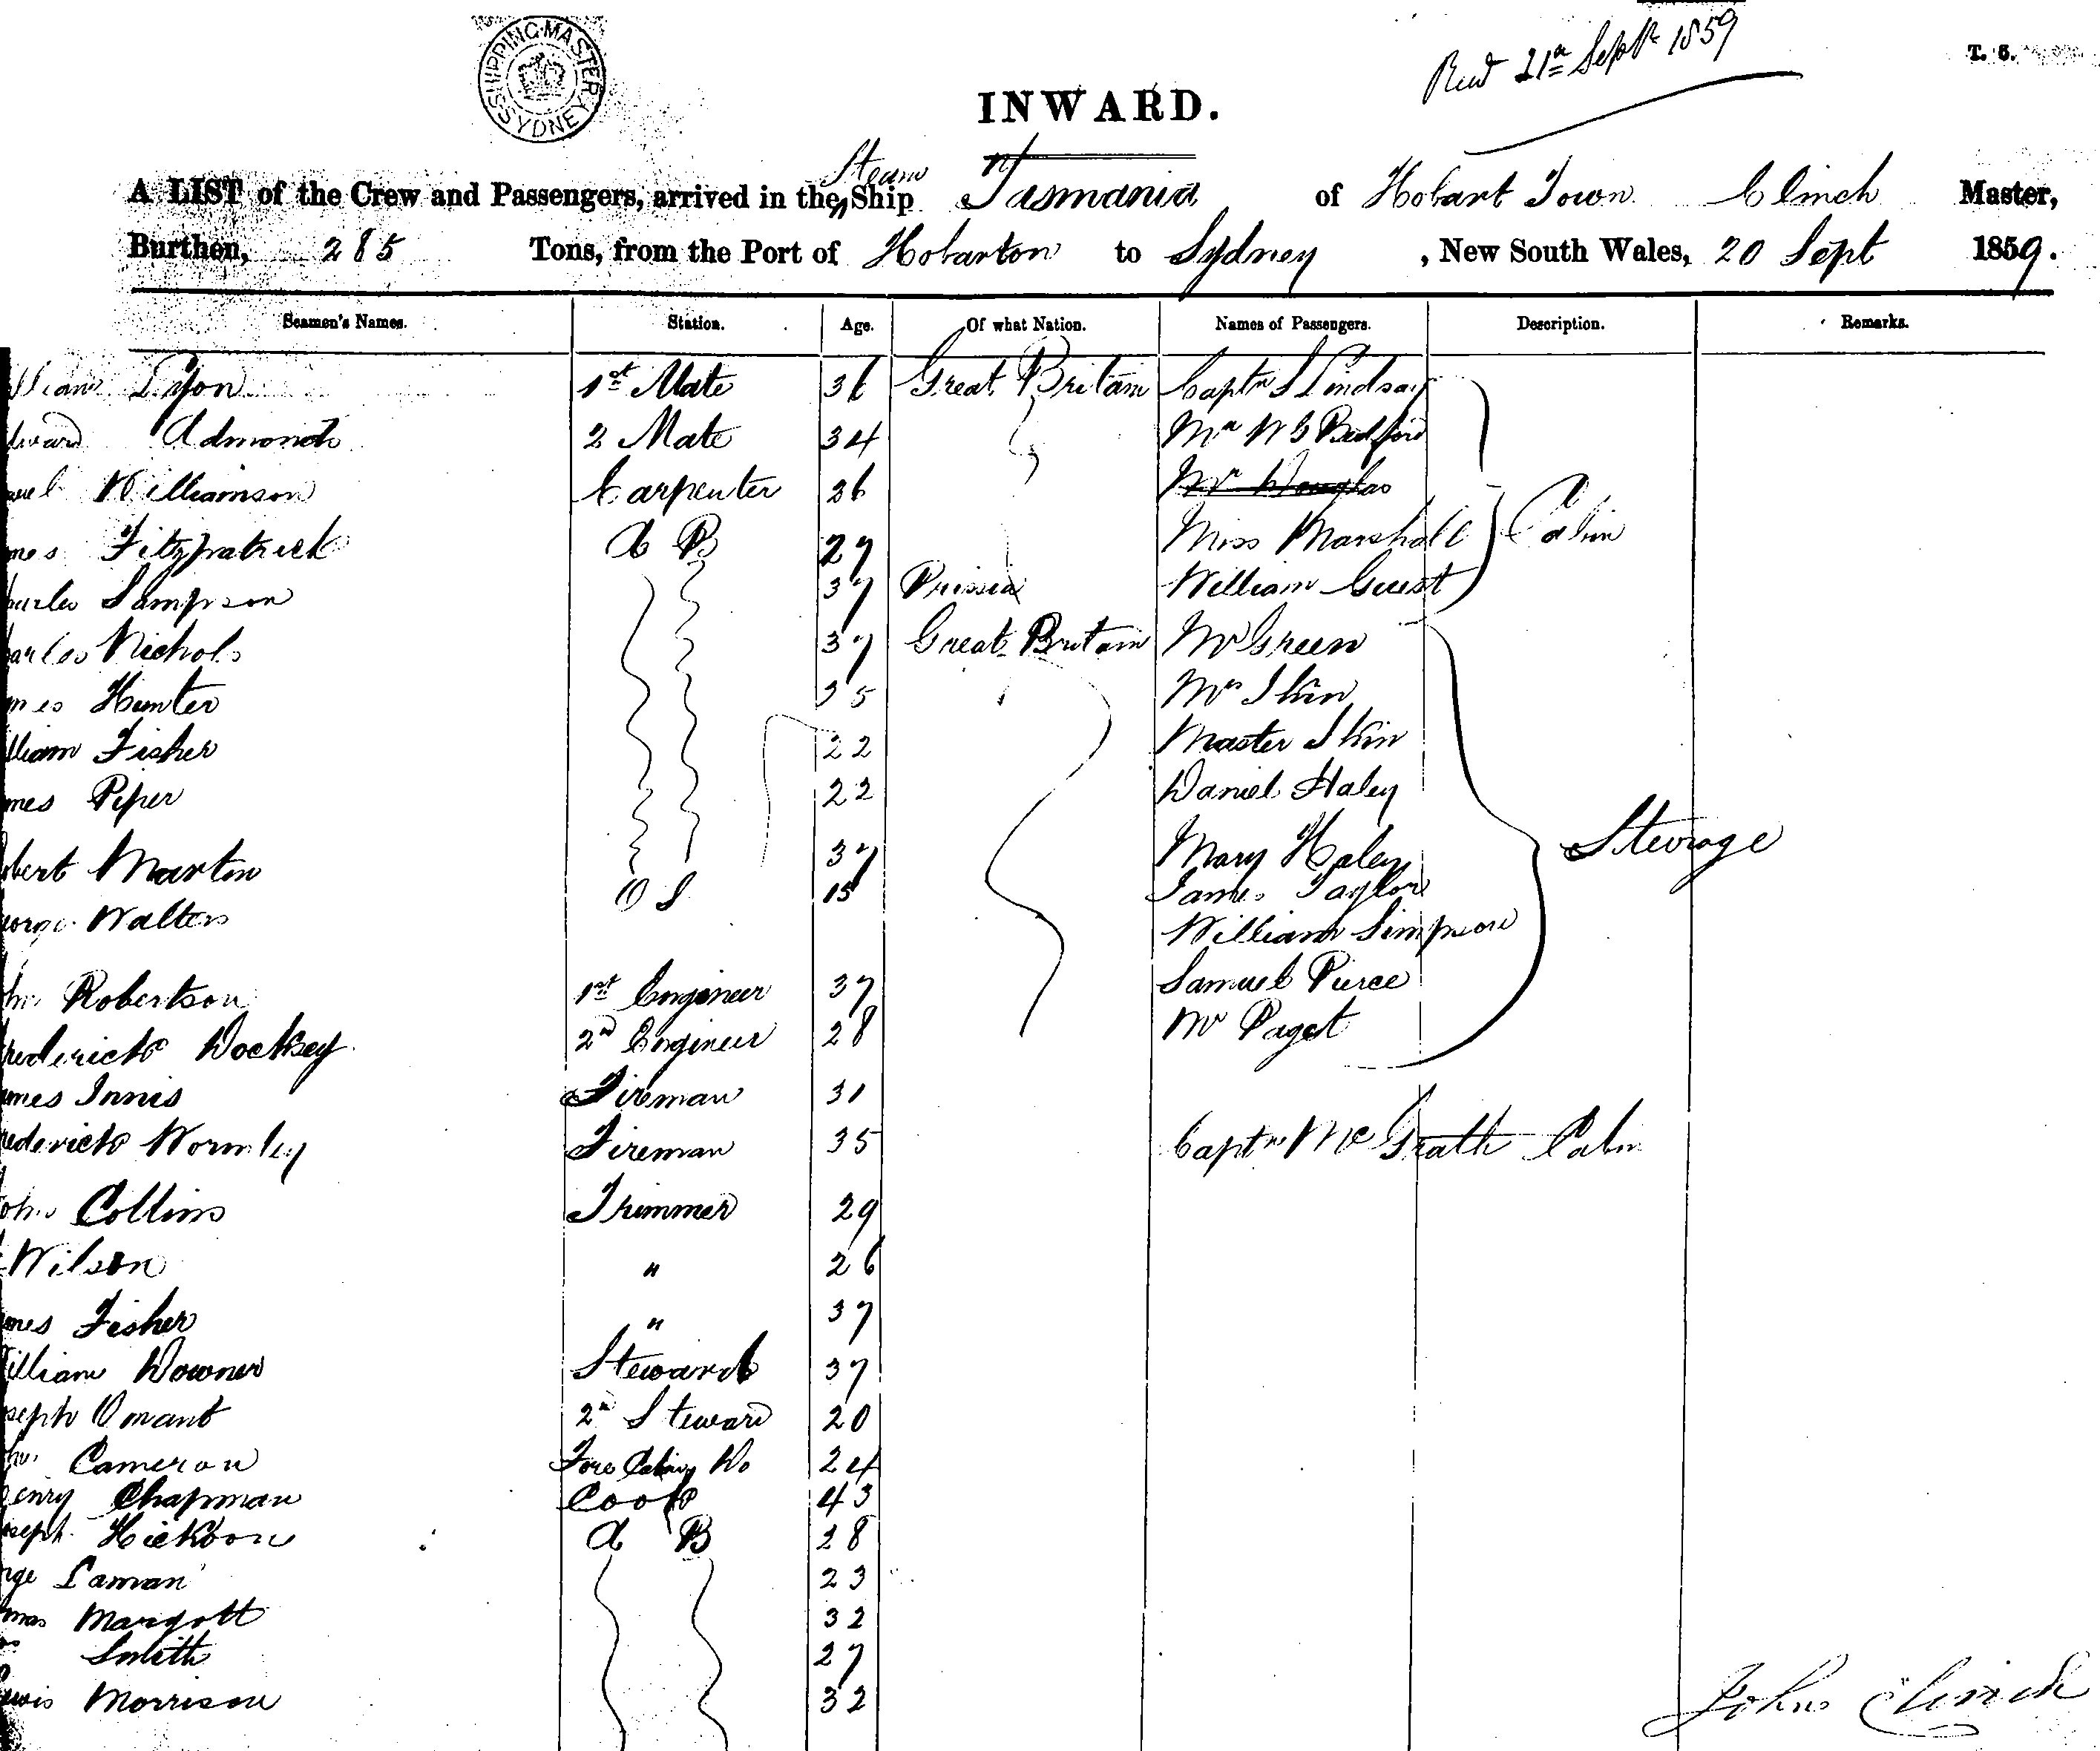 SHIPPING MASTER SYDNEY
Recd 21st Septr 1859
T. 6.
INWARD.
Steam
A LIST of the Crew and Passengers, arrived in the Ship Tasmania of Hobart Town Clinch Master,
Burthen, 285 Tons, from the Port of Hobarton to Sydney, New South Wales, 20 Sept 1859.
Seamen's Names. Station. Age. Of what Nation. Names of Passengers. Description. Remarks.
lliam Lyon 1st Mate 36 Great Britain Captn Lindsay
dward Admonds 2 Mate 34 Mr W G Bedford
uel Williamson Carpenter 26 Mr Douglas
mes Fitzpatrick A B 27 Miss Marshall Cabin
harles Sampson 37 Prussia William Guest
arles Nichols 37 Great Britain Mr Green
mes Hunter 25 Mrs Skin
lliam Fisher 22 Master Skin
mes Piper 22 Daniel Haley
bert Martin 37 Mary Haley Sterage
eorge Walters O S 15 James Taylor
William Simpson
hn Robertson 1st Engineer 37 Samuel Pierce
rederick Docksey 2nd Engineer 28 Mr Paget
ames Innis Fireman 31
rederick Wormley Fireman 35 Captn McGrath Cabin
ohn Collins Trimmer 29
Wilson " 26
mes Fisher " 37
illiam Downer Steward 37
seph Omant 2nd Steward 20
hn Cameron Fore Cabin Do 24
enry Chapman Cook 43
oseph Hickson A B 28
rge Laman 23
mas Margott 32
Smith 27
ewis Morrison 32
John Clinch